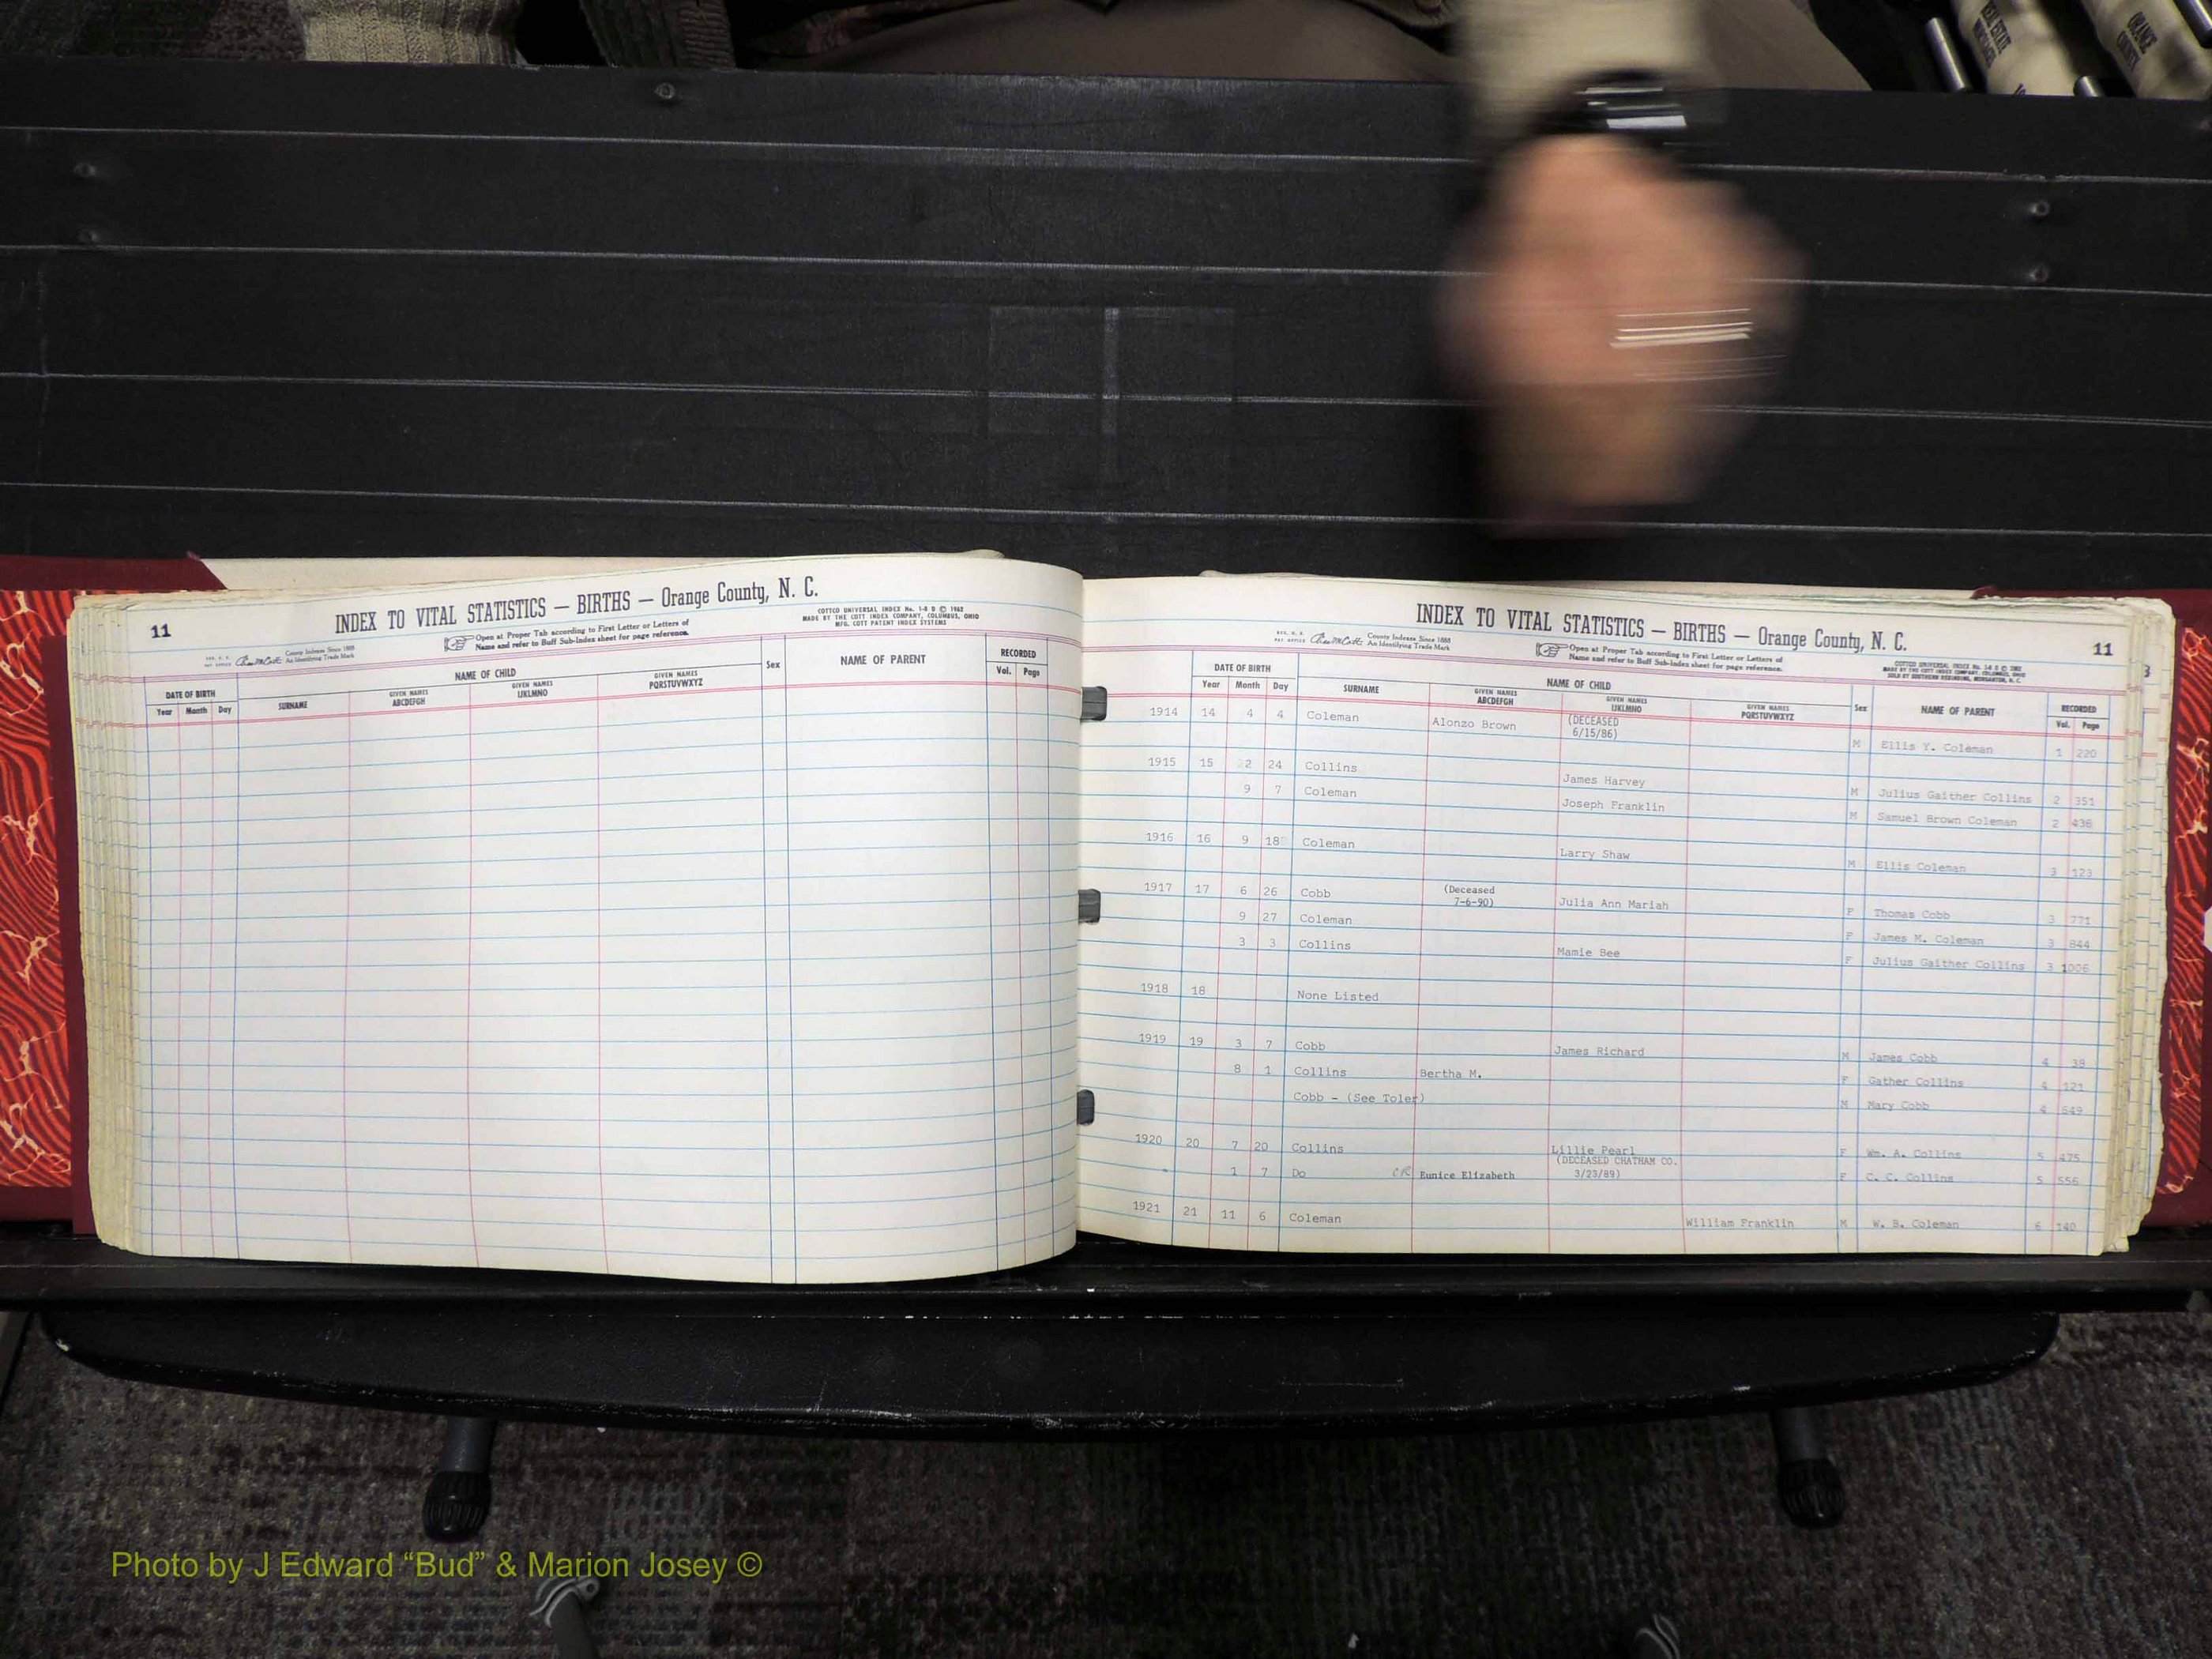 REAL ESTATE
ORANGE COUNTY
11
INDEX TO VITAL STATISTICS — BIRTHS — Orange County, N. C.
COTTCO UNIVERSAL INDEX No. 1-8 D © 1962
MADE BY THE COTT INDEX COMPANY, COLUMBUS, OHIO
MFG. COTT PATENT INDEX SYSTEMS
County Indexes Since 1888
An Identifying Trade Mark
Open at Proper Tab according to First Letter or Letters of
Name and refer to Buff Sub-Index sheet for page reference.
DATE OF BIRTH NAME OF CHILD Sex NAME OF PARENT RECORDED
Year Month Day SURNAME GIVEN NAMES ABCDEFGH GIVEN NAMES IJKLMNO GIVEN NAMES PQRSTUVWXYZ Vol. Page
INDEX TO VITAL STATISTICS — BIRTHS — Orange County, N. C.
11
County Indexes Since 1888
An Identifying Trade Mark
Open at Proper Tab according to First Letter or Letters of
Name and refer to Buff Sub-Index sheet for page reference.
DATE OF BIRTH NAME OF CHILD Sex NAME OF PARENT RECORDED
Year Month Day SURNAME GIVEN NAMES ABCDEFGH GIVEN NAMES IJKLMNO GIVEN NAMES PQRSTUVWXYZ Vol. Page
1914 14 4 4 Coleman Alonzo Brown (DECEASED 6/15/86) M Ellis Y. Coleman 1 220
1915 15 22 24 Collins James Harvey M Julius Gaither Collins 2 351
9 7 Coleman Joseph Franklin M Samuel Brown Coleman 2 436
1916 16 9 18 Coleman Larry Shaw M Ellis Coleman 3 123
1917 17 6 26 Cobb (Deceased 7-6-90) Julia Ann Mariah F Thomas Cobb 3 771
9 27 Coleman F James M. Coleman 3 844
3 3 Collins Mamie Bee F Julius Gaither Collins 3 1006
1918 18 None Listed
1919 19 3 7 Cobb James Richard M James Cobb 4 39
8 1 Collins Bertha M. F Gather Collins 4 121
Cobb - (See Toler) M Mary Cobb 4 549
1920 20 7 20 Collins Lillie Pearl F Wm. A. Collins 5 475
(DECEASED CHATHAM CO.
1 7 Do CR Eunice Elizabeth 3/23/89) F C. C. Collins 5 556
1921 21 11 6 Coleman William Franklin M W. B. Coleman 6 140
Photo by J Edward “Bud” & Marion Josey ©